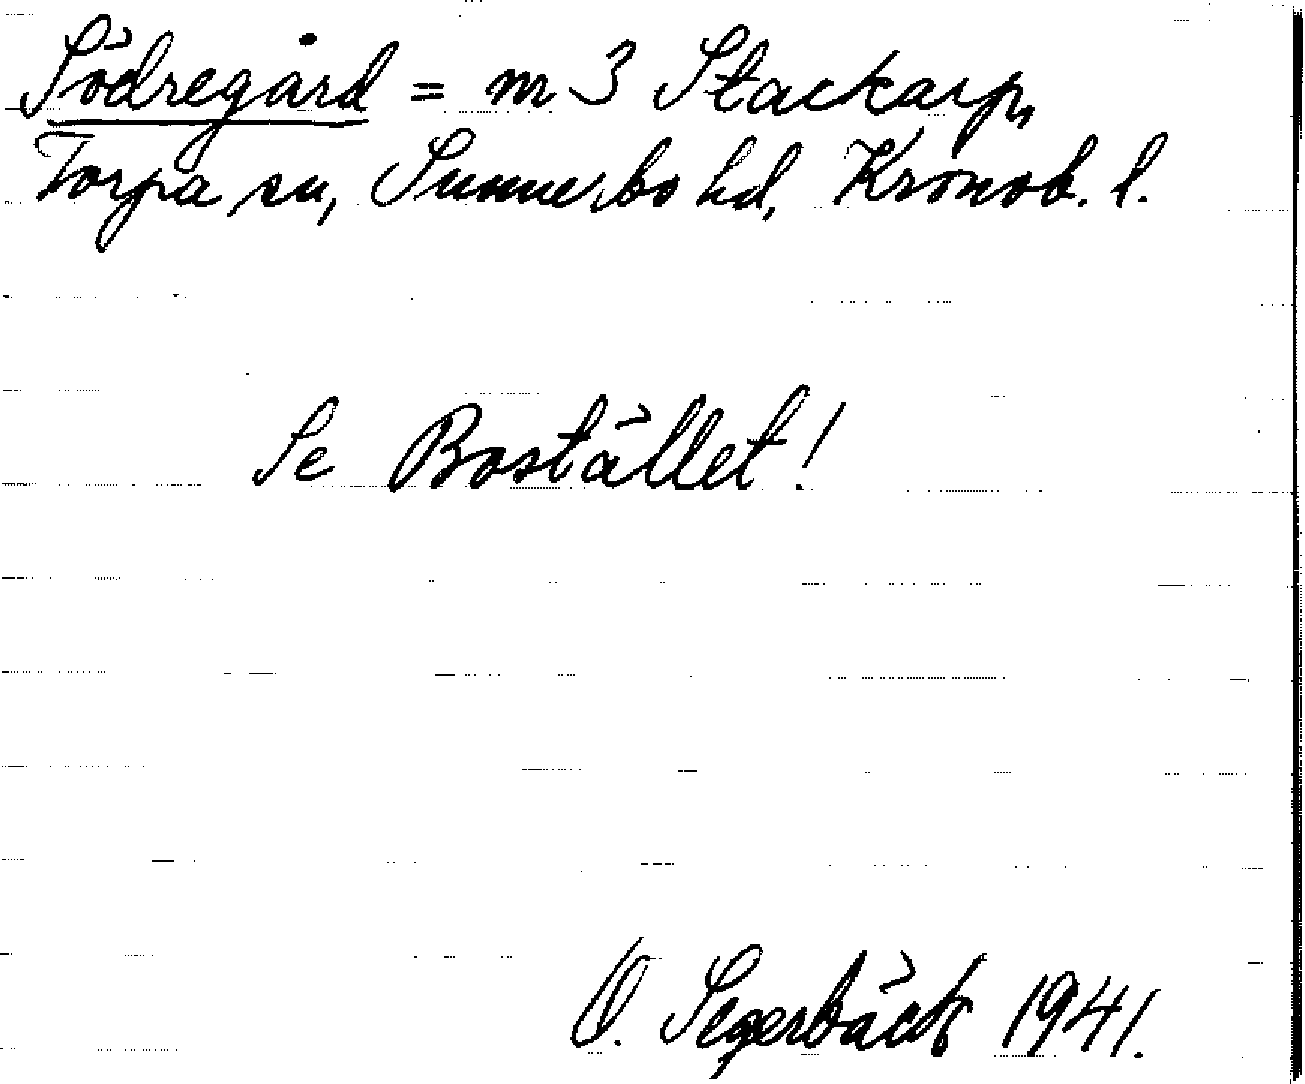 Södregård = m 3 Stackarp,
Torpa sn, Sunnerbo hd, Kronob. l.
Se Bostället!
O. Segerbäck 1941.